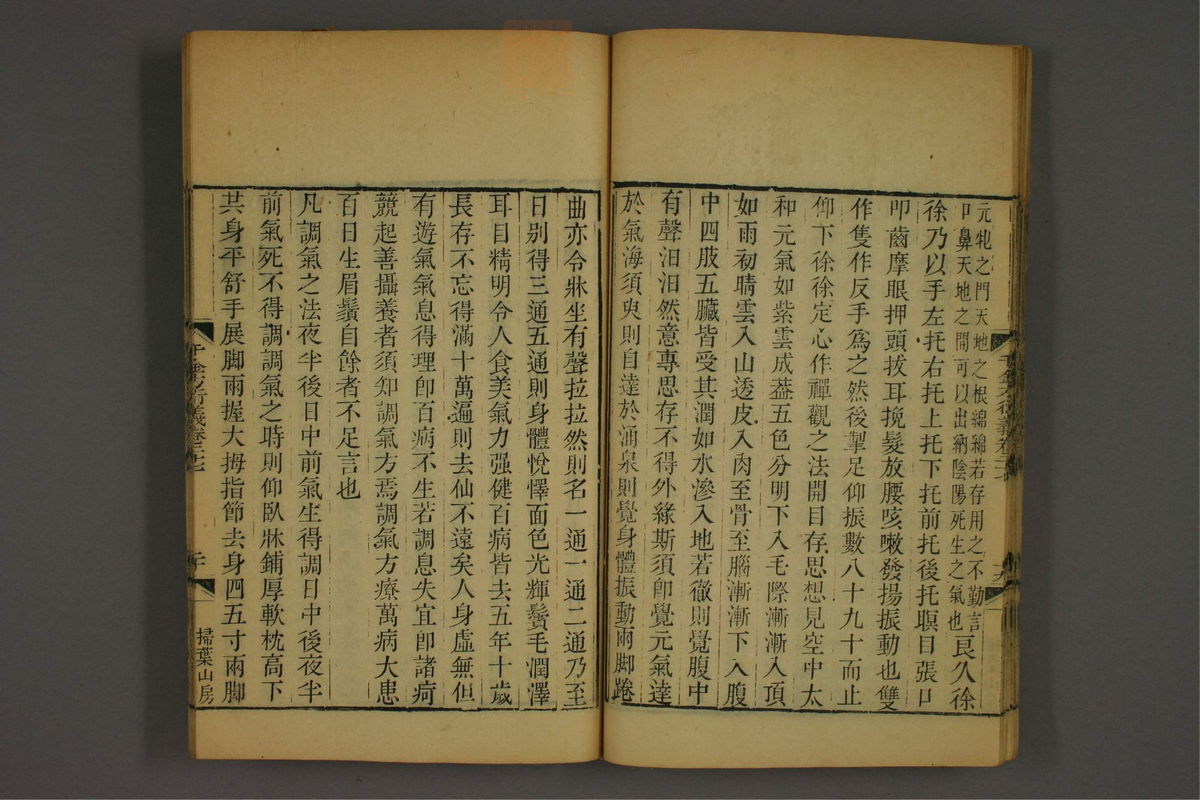 元牝之門天地之根綿綿若存用之不勤言
口鼻天地之間可以出納陰陽死生之氣也
良久徐
徐乃以手左托右托上托下托前托後托瞑目張口
叩齒摩眼押頭拔耳挽髮放腰咳嗽發揚振動也雙
作隻作反手爲之然後掣足仰振數八十九十而止
仰下徐徐定心作禪觀之法開目存思想見空中太
和元氣如紫雲成葢五色分明下入毛際漸漸入頂
如雨初晴雲入山透皮入肉至骨至腦漸漸下入腹
中四肢五臟皆受其潤如水滲入地若徹則覺腹中
有聲汩汩然意專思存不得外緣斯須卽覺元氣達
於氣海須臾則自達於涌泉則覺身體振動兩脚踡
曲亦令牀坐有聲拉拉然則名一通一通二通乃至
日别得三通五通則身體悅懌面色光輝鬢毛潤澤
耳目精明令人食美氣力强健百病皆去五年十歲
長存不忘得滿十萬遍則去仙不遠矣人身虛無但
有遊氣氣息得理卽百病不生若調息失宜卽諸疴
競起善攝養者須知調氣方焉調氣方療萬病大患
百日生眉鬚自餘者不足言也
凡調氣之法夜半後日中前氣生得調日中後夜半
前氣死不得調調氣之時則仰臥牀鋪厚軟枕高下
共身平舒手展脚兩握大拇指節去身四五寸兩脚
千金方衍義卷二十七
二十
掃葉山房